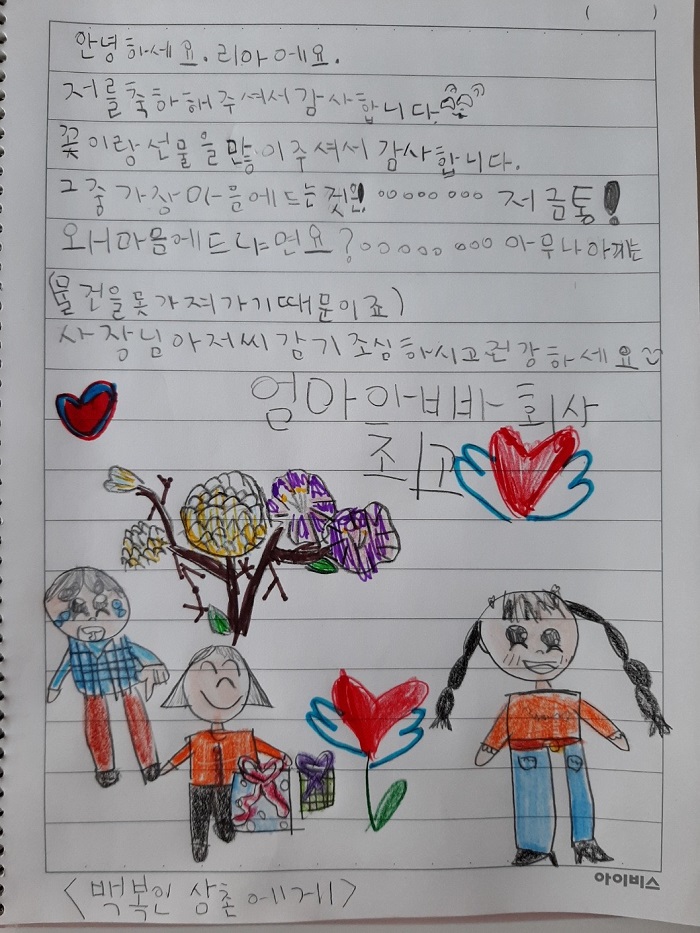 (        )
안녕하세요. 리아에요.
저를축하해주셔서감사합니다
꽃이랑선물을많이주셔서감사합니다.
그중가장마음에드는것은 ㅇㅇㅇㅇㅇ ㅇㅇㅇ 저금통!
왜마음에드냐면요?ㅇㅇㅇㅇㅇ ㅇㅇㅇ 아무나아끼는
(물건을못가져가기때문이죠)
사장님아저씨감기조심하시고건강하세요
엄마아빠회사
최고
아이비스
<백복인 삼촌에게>